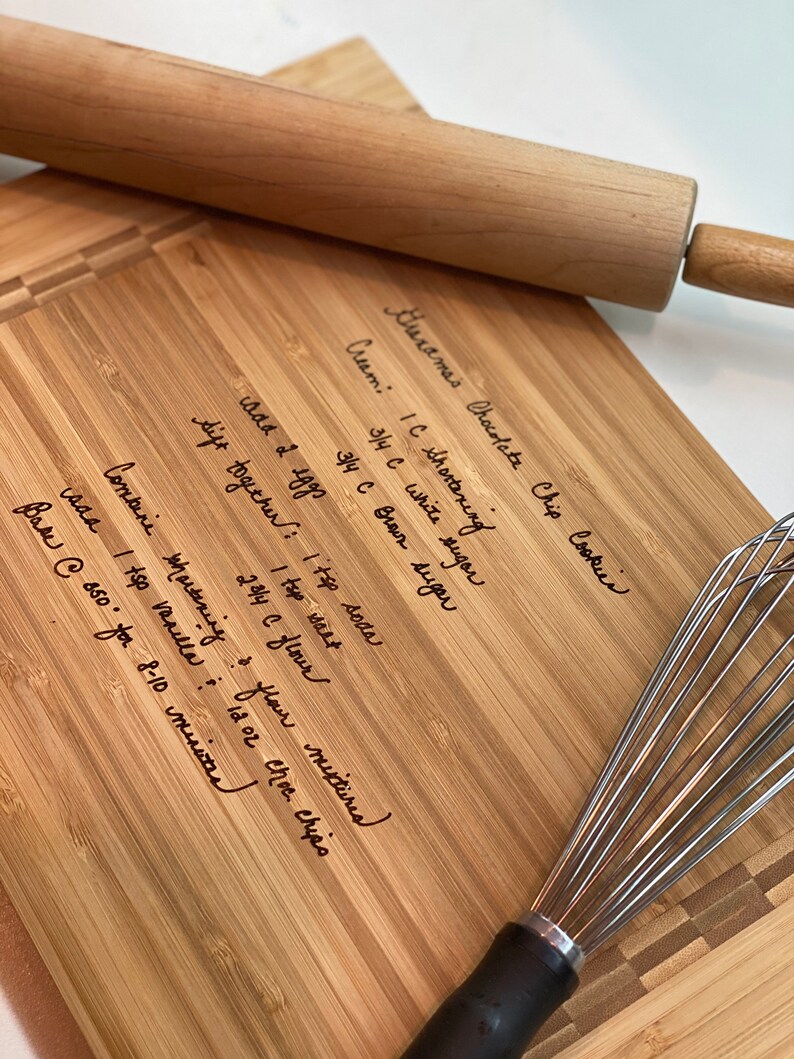 Grandmas Chocolate Chip Cookies
Cream: 1 C shortening
3/4 C white sugar
3/4 C Brown sugar
add 2 eggs
sift together: 1 tsp soda
1 tsp salt
2 3/4 C flour
Combine shortening & flour mixtures
add 1 tsp vanilla & 12 oz choc. chips
Bake @ 350° for 8-10 minutes